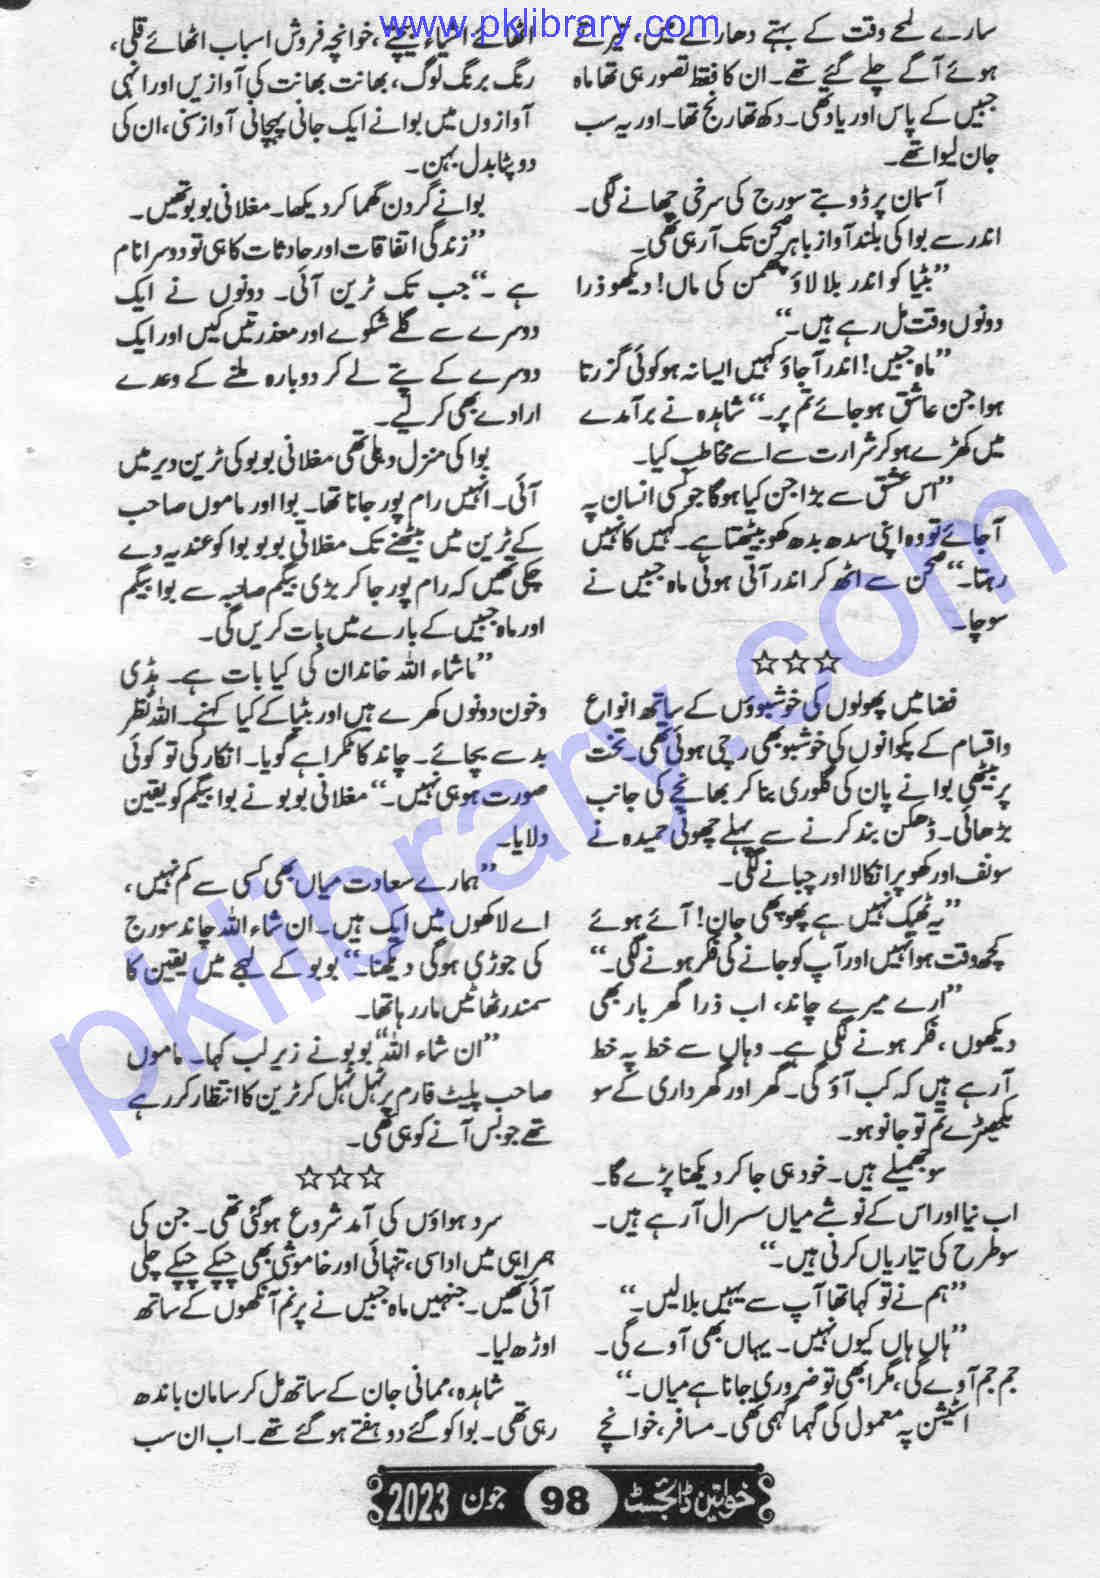 www.pklibrary.com
سارے لمحے وقت کے بہتے دھارے میں، تیرتے
ہوئے آگے چلے گئے تھے۔ ان کا فقط تصور ہی تھا ماہ
جبیں کے پاس اور یاد تھی۔ دکھ تھا رنج تھا۔ اور یہ سب
جان لیوا تھے۔
آسمان پر ڈوبتے سورج کی سرخی چھانے لگی۔
اندر سے بوا کی بلند آواز باہر صحن تک آ رہی تھی۔
”بٹیا کو اندر بلا لاؤ چھمن کی ماں! دیکھو ذرا
دونوں وقت مل رہے ہیں۔“
”ماہ جبیں! اندر آجاؤ کہیں ایسا نہ ہو کوئی گزرتا
ہوا جن عاشق ہو جائے تم پر۔“ شاہدہ نے برآمدے
میں کھڑے ہو کر شرارت سے اسے مخاطب کیا۔
”اس عشق سے بڑا جن کیا ہوگا جو کسی انسان پہ
آجائے تو وہ اپنی سدھ بدھ کھو بیٹھتا ہے۔ کہیں کا نہیں
رہتا۔“ صحن سے اٹھ کر اندر آتی ہوئی ماہ جبیں نے
سوچا۔
☆☆☆
فضا میں پھولوں کی خوشبوؤں کے ساتھ انواع
واقسام کے پکوانوں کی خوشبو بھی رچی ہوئی تھی۔ تخت
پر بیٹھی بوا نے پان کی گلوری بنا کر بھانجے کی جانب
بڑھائی۔ ڈھکن بند کرنے سے پہلے چھوٹی حمیدہ نے
سونف اور کھوپرا نکالا اور چبانے لگی۔
”یہ ٹھیک نہیں ہے پھوپھی جان! آئے ہوئے
کچھ وقت ہوا نہیں اور آپ کو جانے کی فکر ہونے لگی۔“
”ارے میرے چاند، اب ذرا گھر بار بھی
دیکھوں، فکر ہونے لگی ہے۔ وہاں سے خط پہ خط
آ رہے ہیں کہ کب آؤ گی۔ گھر اور گھر داری کے سو
بکھیڑے تم تو جانو ہو۔
سو جھمیلے ہیں۔ خود ہی جا کر دیکھنا پڑے گا۔
اب نیا اور اس کے نوشے میاں سسرال آ رہے ہیں۔
سو طرح کی تیاریاں کرنی ہیں۔“
”ہم نے تو کہا تھا آپ سے یہیں بلا لیں۔“
”ہاں ہاں کیوں نہیں۔ یہاں بھی آوے گی۔
جم جم آوے گی، مگر ابھی تو ضروری جانا ہے میاں۔“
اسٹیشن پہ معمول کی گہما گہمی تھی۔ مسافر، خوانچے
اٹھائے اشیاء بیچتے، خوانچہ فروش اسباب اٹھائے قلی،
رنگ برنگ لوگ، بھانت بھانت کی آوازیں اور انہی
آوازوں میں بوا نے ایک جانی پہچانی آواز سنی، ان کی
دوپٹا بدل بہن۔
بوا نے گردن گھما کر دیکھا۔ مغلانی بوبو تھیں۔
”زندگی اتفاقات اور حادثات کا ہی تو دوسرا نام
ہے۔“ جب تک ٹرین آئی۔ دونوں نے ایک
دوسرے سے گلے شکوے اور معذرتیں کیں اور ایک
دوسرے کے پتے لے کر دوبارہ ملنے کے وعدے
ارادے بھی کر لیے۔
بوا کی منزل دہلی تھی مغلانی بوبو کی ٹرین دیر میں
آئی۔ انہیں رام پور جانا تھا۔ بوا اور ماموں صاحب
کے ٹرین میں بیٹھنے تک مغلانی بوبو بوا کو عندیہ دے
چکی تھیں کہ رام پور جا کر بڑی بیگم صاحبہ سے بوا بیگم
اور ماہ جبیں کے بارے میں بات کریں گی۔
”ماشاء اللہ خاندان کی کیا بات ہے۔ ہڈی
وخون دونوں کھرے ہیں اور بٹیا کے کیا کہنے۔ اللہ نظر
بد سے بچائے۔ چاند کا ٹکڑا ہے گویا۔ انکار کی تو کوئی
صورت ہو ہی نہیں۔“ مغلانی بوبو نے بوا بیگم کو یقین
دلایا۔
”ہمارے سعادت میاں بھی کسی سے کم نہیں،
اے لاکھوں میں ایک ہیں۔ ان شاء اللہ چاند سورج
کی جوڑی ہوگی دیکھنا۔“ بوبو کے لہجے میں یقین کا
سمندر ٹھاٹیں مار رہا تھا۔
”ان شاء اللہ“ بوبو نے زیر لب کہا۔ ماموں
صاحب پلیٹ فارم پر ٹہل ٹہل کر ٹرین کا انتظار کر رہے
تھے جو بس آنے کو ہی تھی۔
☆☆☆
سرد ہواؤں کی آمد شروع ہو گئی تھی۔ جن کی
ہمراہی میں اداسی، تنہائی اور خاموشی بھی چپکے چپکے چلی
آئی تھیں۔ جنہیں ماہ جبیں نے پرنم آنکھوں کے ساتھ
اوڑھ لیا۔
شاہدہ، ممانی جان کے ساتھ مل کر سامان باندھ
رہی تھی۔ بوا کو گئے دو ہفتے ہو گئے تھے۔ اب ان سب
خواتین ڈائجسٹ 98 جون 2023
pklibrary.com